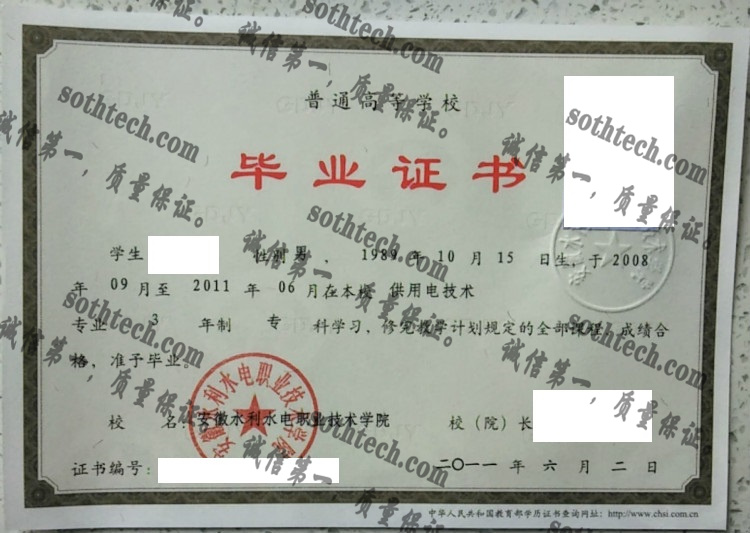 普通高等学校
毕业证书
学生 性别 男 , 1989 年 10 月 15 日生, 于 2008
年 09 月至 2011 年 06 月在本校 供用电技术
专业 3 年制 专 科学习, 修完教学计划规定的全部课程, 成绩合
格, 准予毕业。
校 名: 安徽水利水电职业技术学院
校(院)长
证书编号:
二〇一一 年 六 月 二 日
中华人民共和国教育部学历证书查询网址: http://www.chsi.com.cn
安徽水利水电职业技术学院
sothtech.com
诚信第一,质量保证。
sothtech.com
诚信第一,质量保证。
sothtech.com
诚信第一,质量保证。
sothtech.com
诚信第一,质量保证。
sothtech.com
诚信第一,质量保证。
sothtech.com
诚信第一,质量保证。
sothtech.com
诚信第一,质量保证。
sothtech.com